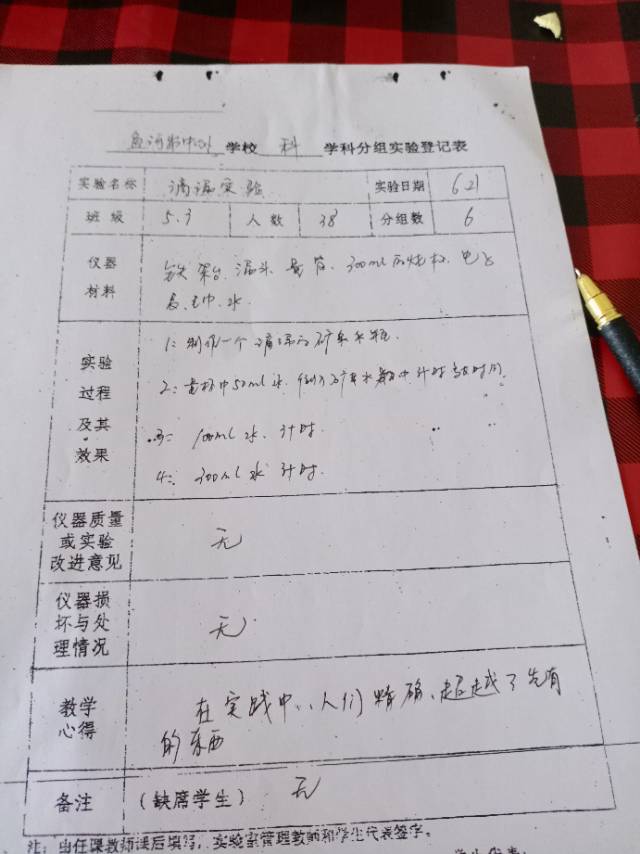 学校 科 学科分组实验登记表
实验名称 滴漏实验 实验日期 6.21
班级 5.3 人数 38 分组数 6
仪器
材料
铁架台、漏斗、量筒、300ml的烧杯
水
实验
过程
及其
效果
1: 制作一个滴漏的矿泉水瓶.
2: 量杯中50ml水. 倒入矿泉水瓶中计时
3: 100ml 水. 计时.
4: 300ml 水 计时.
仪器质量
或实验
改进意见
无
仪器损
坏与处
理情况
无
教学
心得
在实践中、人们精确、超越了先有
的东西
备注 (缺席学生) 无
注: 由任课教师课后填写, 实验室管理教师和学生代表签字。